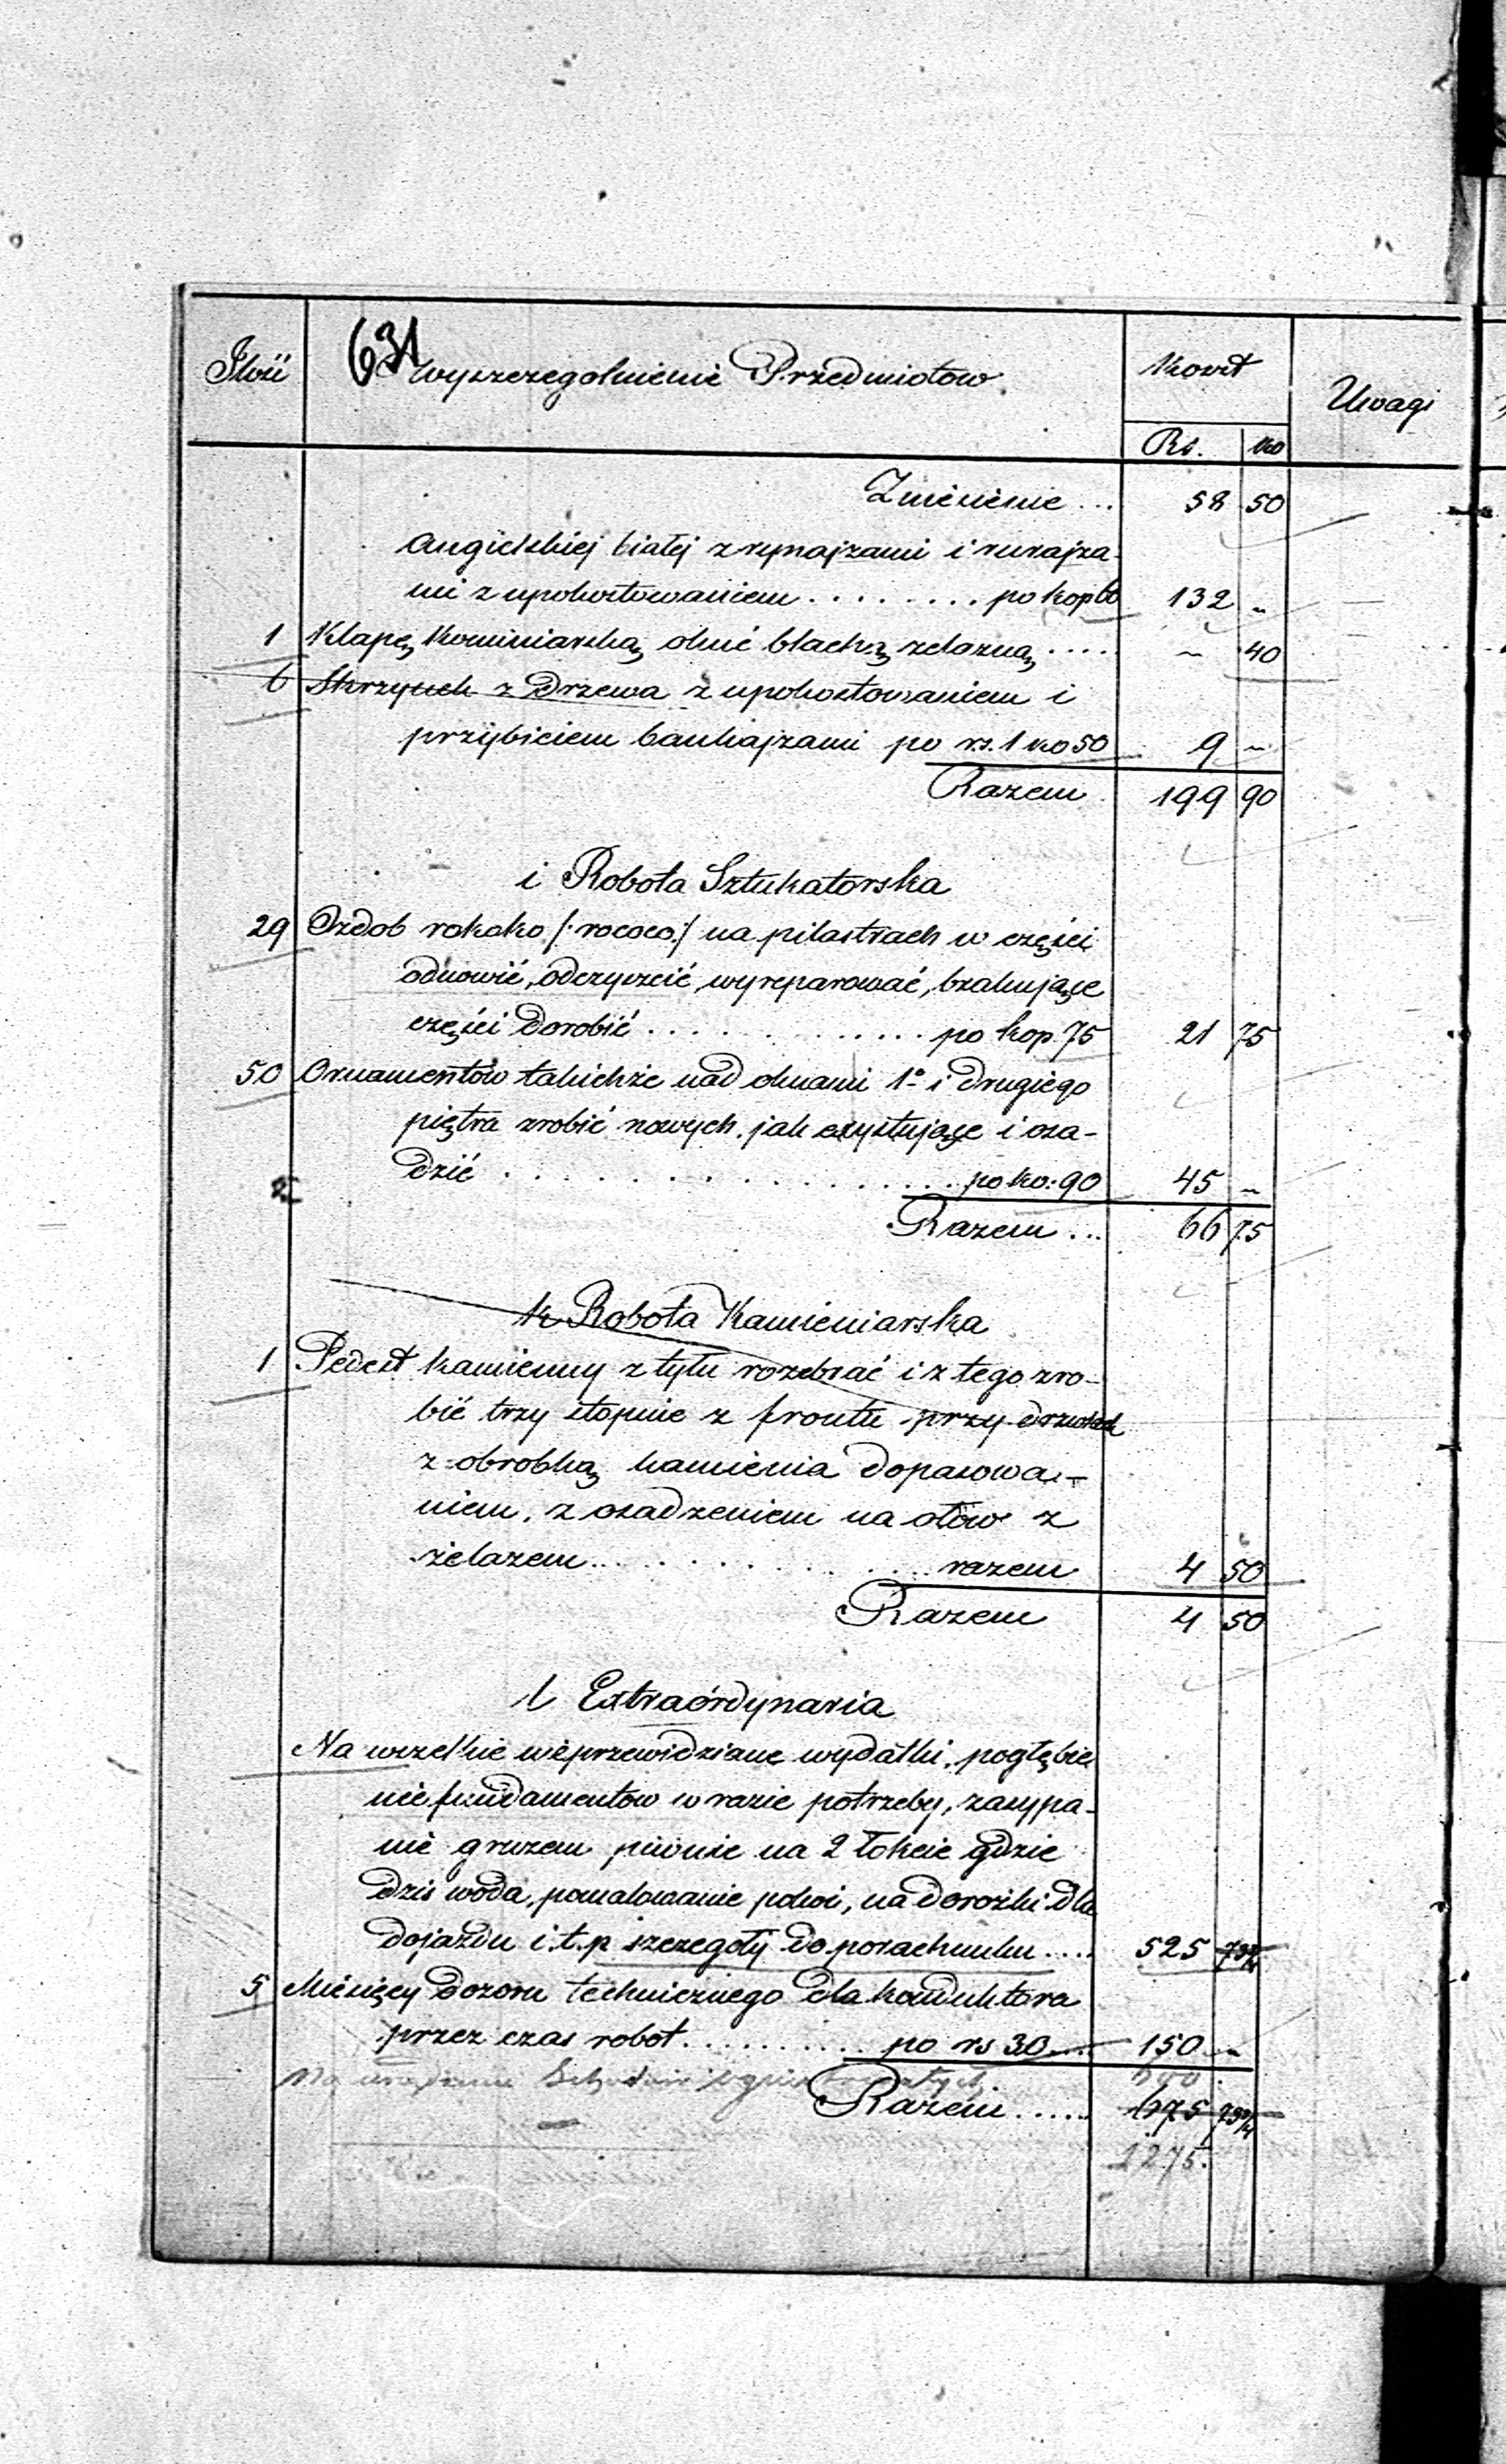 631
Ilość Wyszczególnienie Przedmiotów Koszt Uwagi
Rs. Ko
Zniesienie ... 58 50
angielskiej białej z rynajzami i rurajza-
mi z upokostowaniem ........ po kop 60 132 ~
1 Klapę kominiarską okuć blachą żelazną .... ~ 40
6 Skrzynek z drzewa z upokostowaniem i
przybiciem bankajzami po rs. 1 ko 50 9 ~
Razem 199 90
i Robota Sztukatorska
29 Ozdob rokoko /:rococo:/ na pilastrach w części
odnowić, oczyścić, wyreparować, brakujące
części dorobić ............. po kop. 75 21 75
50 Ornamentów takichże nad oknami 1º i drugiego
piętra zrobić nowych jak exystujące i osa-
dzić ................. po ko: 90 45 ~
Razem ... 66 75
k Robota Kamieniarska
1 Pedest kamienny z tyłu rozebrać i z tego zro-
bić trzy stopnie z frontu przy drzwiach
z obrobką kamienia dopasowa-
niem, z osadzeniem na ołów z
żelazem ............ razem 4 50
Razem 4 50
l Extraórdynaria
Na wszelkie nieprzewidziane wydatki, pogłębie
nie fundamentów w razie potrzeby, zasypa-
nie gruzem piwnic na 2 łokcie gdzie
dziś woda, pomalowanie pokoi, na dorożki dla
dojazdu i.t.p szczegoły do porachunku .... 525 73¾
5 Miesięcy dozoru technicznego dla konduktora
przez czas robot .......... po rs 30 150 ~
Na urządzenie Schodów ogniotrwałych. 600.
Razem ...... 675 73¾
1275.